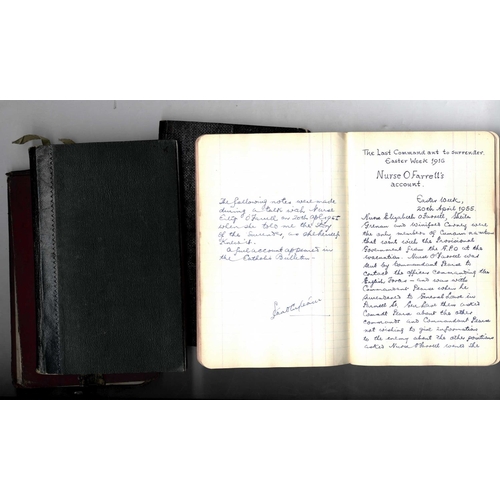 The following notes were made
during a talk with Nurse
Elizth O'Farrell on 20th Apl 1955
when she told me the story
of the Surrender, as She helped
A full account appeared in
the Catholic Bulletin
The Last Commandant to surrender
Easter Week 1916
Nurse O'Farrell's
account.
Easter Week,
20th April 1955.
Nurse Elizabeth O'Farrell, Sheila
Grenan and Winifred Carney were
the only members of Cumann na mban
that went with the Provisional
Government from the G.P.O at the
evacuation. Nurse O'Farrell was
sent by Commandant Pearse to
contact the officers commanding the
English Forces – and was with
Commandant Pearse when he
surrendered to General Lowe in
Parnell St. Gen Lowe then asked
Comdt Pearse about the other
commands and Commandant Pearse
not wishing to give information
to the enemy about the other positions
asked Nurse O'Farrell would she